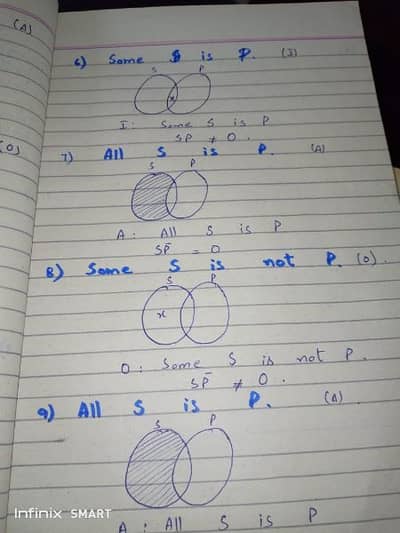 (A)
6) Some S is P. (I)
S P
x
I: Some S is P
SP ≠ O.
(O)
7) All S is P. (A)
S P
A: All S is P
SP̄ = O
8) Some S is not P. (O).
S P
x
O: Some S is not P.
SP̄ ≠ O.
9) All S is P. (A).
S P
A: All S is P
Infinix SMART